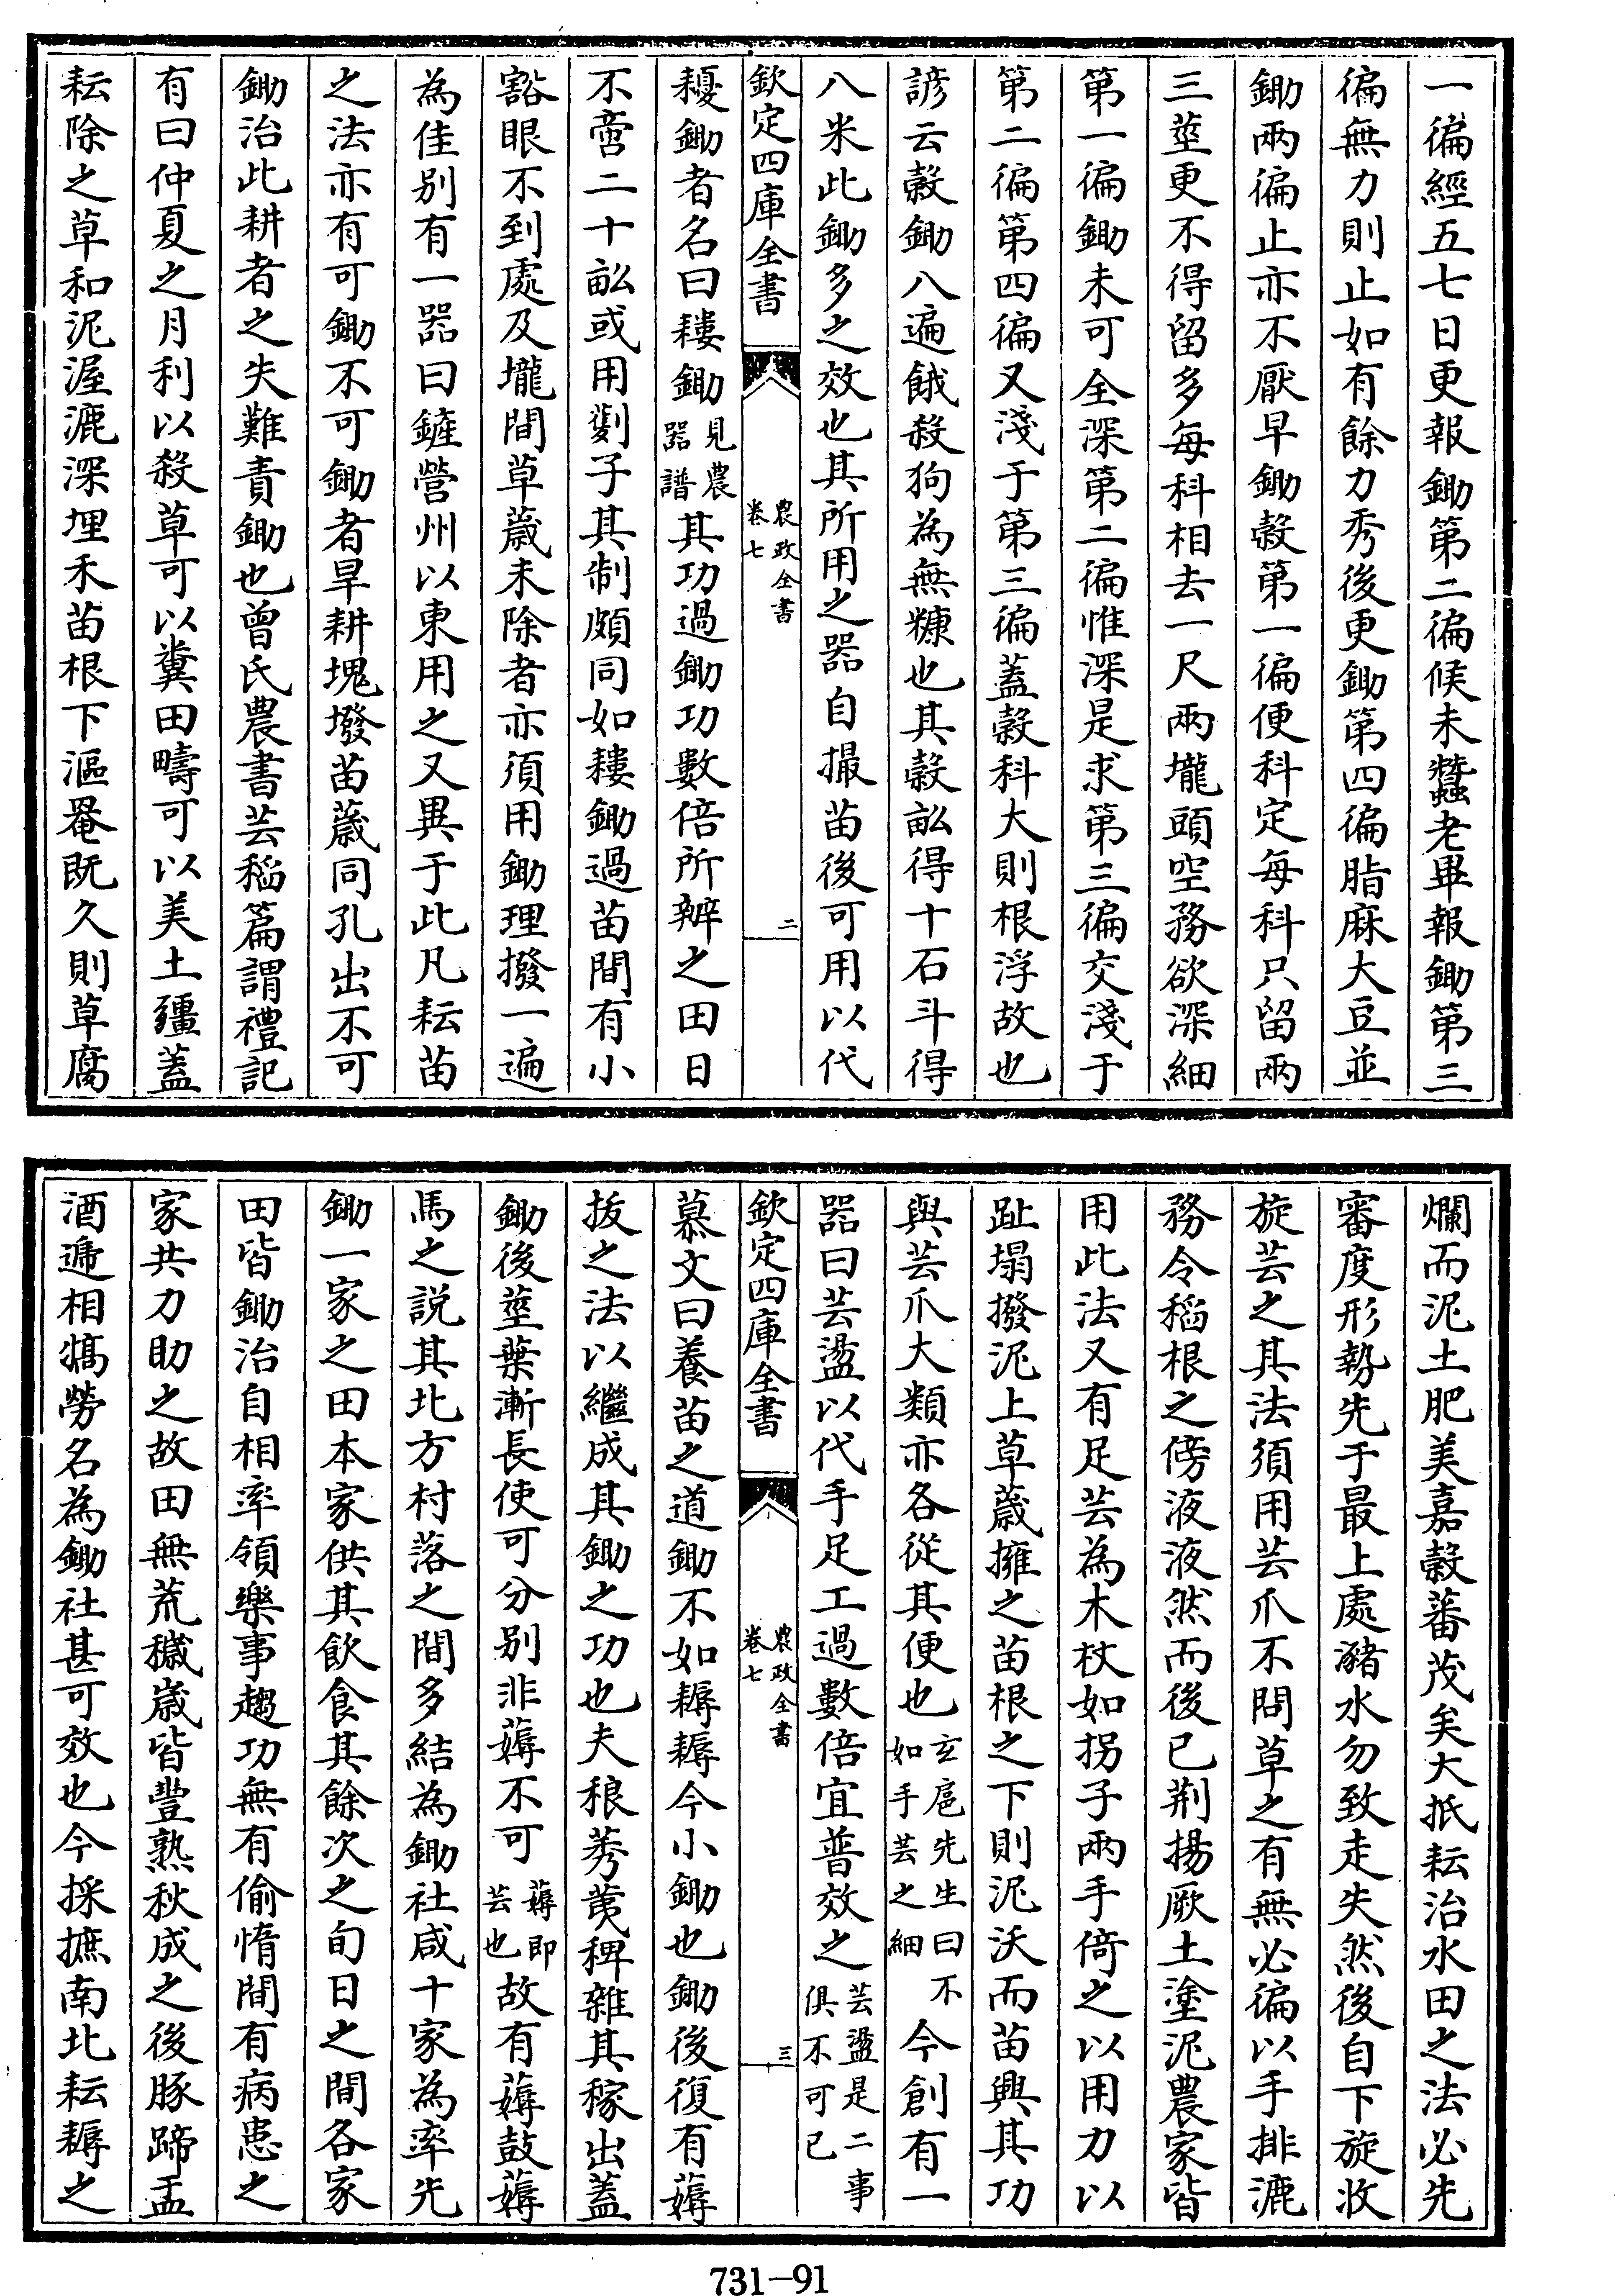 一徧經五七日更報鋤第二徧候未蠶老畢報鋤第三
徧無力則止如有餘力秀後更鋤第四徧脂麻大豆並
鋤兩徧止亦不厭早鋤穀第一徧便科定每科只留兩
三莖更不得留多每科相去一尺兩壠頭空務欲深細
第一徧鋤未可全深第二徧惟深是求第三徧交淺于
第二徧第四徧又淺于第三徧蓋穀科大則根浮故也
諺云穀鋤八遍餓殺狗為無糠也其穀畝得十石斗得
八米此鋤多之效也其所用之器自撮苗後可用以代
欽定四庫全書
農政全書
卷七
二
耰鋤者名曰耬鋤見農器譜其功過鋤功數倍所辨之田日
不啻二十畝或用劐子其制頗同如耬鋤過苗間有小
豁眼不到處及壠間草薉未除者亦須用鋤理撥一遍
為佳别有一器曰鏟營州以東用之又異于此凡耘苗
之法亦有可鋤不可鋤者早耕塊墢苗薉同孔出不可
鋤治此耕者之失難責鋤也曾氏農書芸稻篇謂禮記
有曰仲夏之月利以殺草可以糞田疇可以美土疆蓋
耘除之草和泥渥漉深埋禾苗根下漚罨既久則草腐
爛而泥土肥美嘉穀蕃茂矣大抵耘治水田之法必先
審度形勢先于最上處瀦水勿致走失然後自下旋收
旋芸之其法須用芸爪不問草之有無必徧以手排漉
務令稻根之傍液液然而後已荆揚厥土塗泥農家皆
用此法又有足芸為木杖如拐子兩手倚之以用力以
趾塌撥泥上草薉擁之苗根之下則泥沃而苗興其功
與芸爪大類亦各從其便也玄扈先生曰不如手芸之細今創有一
器曰芸盪以代手足工過數倍宜普效之芸盪是二事俱不可已
欽定四庫全書
農政全書
卷七
三
慕文曰養苗之道鋤不如耨耨今小鋤也鋤後復有薅
拔之法以繼成其鋤之功也夫稂莠荑稗雜其稼出蓋
鋤後莖葉漸長使可分别非薅不可薅即芸也故有薅鼓薅
馬之説其北方村落之間多結為鋤社咸十家為率先
鋤一家之田本家供其飲食其餘次之旬日之間各家
田皆鋤治自相率領樂事趨功無有偷惰間有病患之
家共力助之故田無荒穢嵗皆豐熟秋成之後豚蹄盂
酒遞相犒勞名為鋤社甚可效也今採摭南北耘耨之
731-91